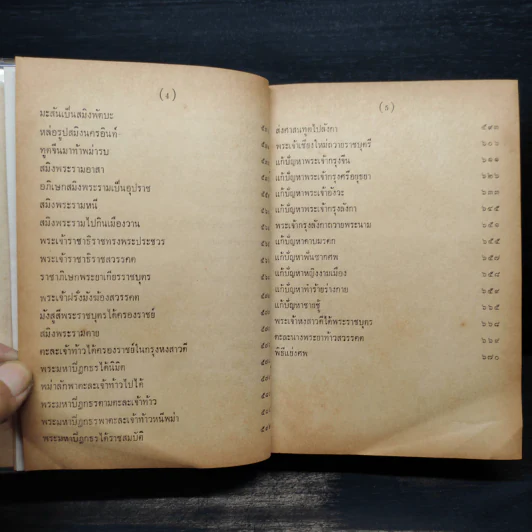 (๔)
มะสันเป็นสมิงพัตบะ
หล่อรูปสมิงนครอินท์
ทูตจีนมาท้าพม่ารบ
สมิงพระรามอาสา
อภิเษกสมิงพระรามเป็นอุปราช
สมิงพระรามหนี
สมิงพระรามไปกินเมืองวาน
พระเจ้าราชาธิราชทรงพระประชวร
พระเจ้าราชาธิราชสวรรคต
ราชาภิเษกพระยาเกียรราชบุตร
พระเจ้าฝรั่งมังฆ้องสวรรคต
มังสุสีพระราชบุตรได้ครองราชย์
สมิงพระรามตาย
ตะละเจ้าท้าวได้ครองราชย์ในกรุงหงสาวดี
พระมหาปิฎกธรได้นิมิต
พม่าลักพาตะละเจ้าท้าวไปได้
พระมหาปิฎกธรตามตะละเจ้าท้าว
พระมหาปิฎกธรพาตะละเจ้าท้าวหนีพม่า
พระมหาปิฎกธรได้ราชสมบัติ
(๕)
ส่งศาสนทูตไปลังกา
พระเจ้าเชียงใหม่ถวายราชบุตรี
แก้ปัญหาพระเจ้ากรุงจีน ๖๑๑
แก้ปัญหาพระเจ้ากรุงศรีอยุธยา ๖๒๖
แก้ปัญหาพระเจ้าอังวะ ๖๓๓
แก้ปัญหาพระเจ้ากรุงลังกา ๖๔๕
พระเจ้ากรุงลังกาถวายพระนาม ๖๕๑
แก้ปัญหาดาบมรดก ๖๕๕
แก้ปัญหาฟันซากศพ ๖๕๗
แก้ปัญหาหญิงงามเมือง ๖๕๘
แก้ปัญหาทำร้ายร่างกาย ๖๕๙
แก้ปัญหาชายชู้ ๖๖๕
พระเจ้าหงสาวดีได้พระราชบุตร ๖๖๘
ตะละนางพระยาท้าวสวรรคต ๖๖๙
พิธีแย่งศพ ๖๗๐